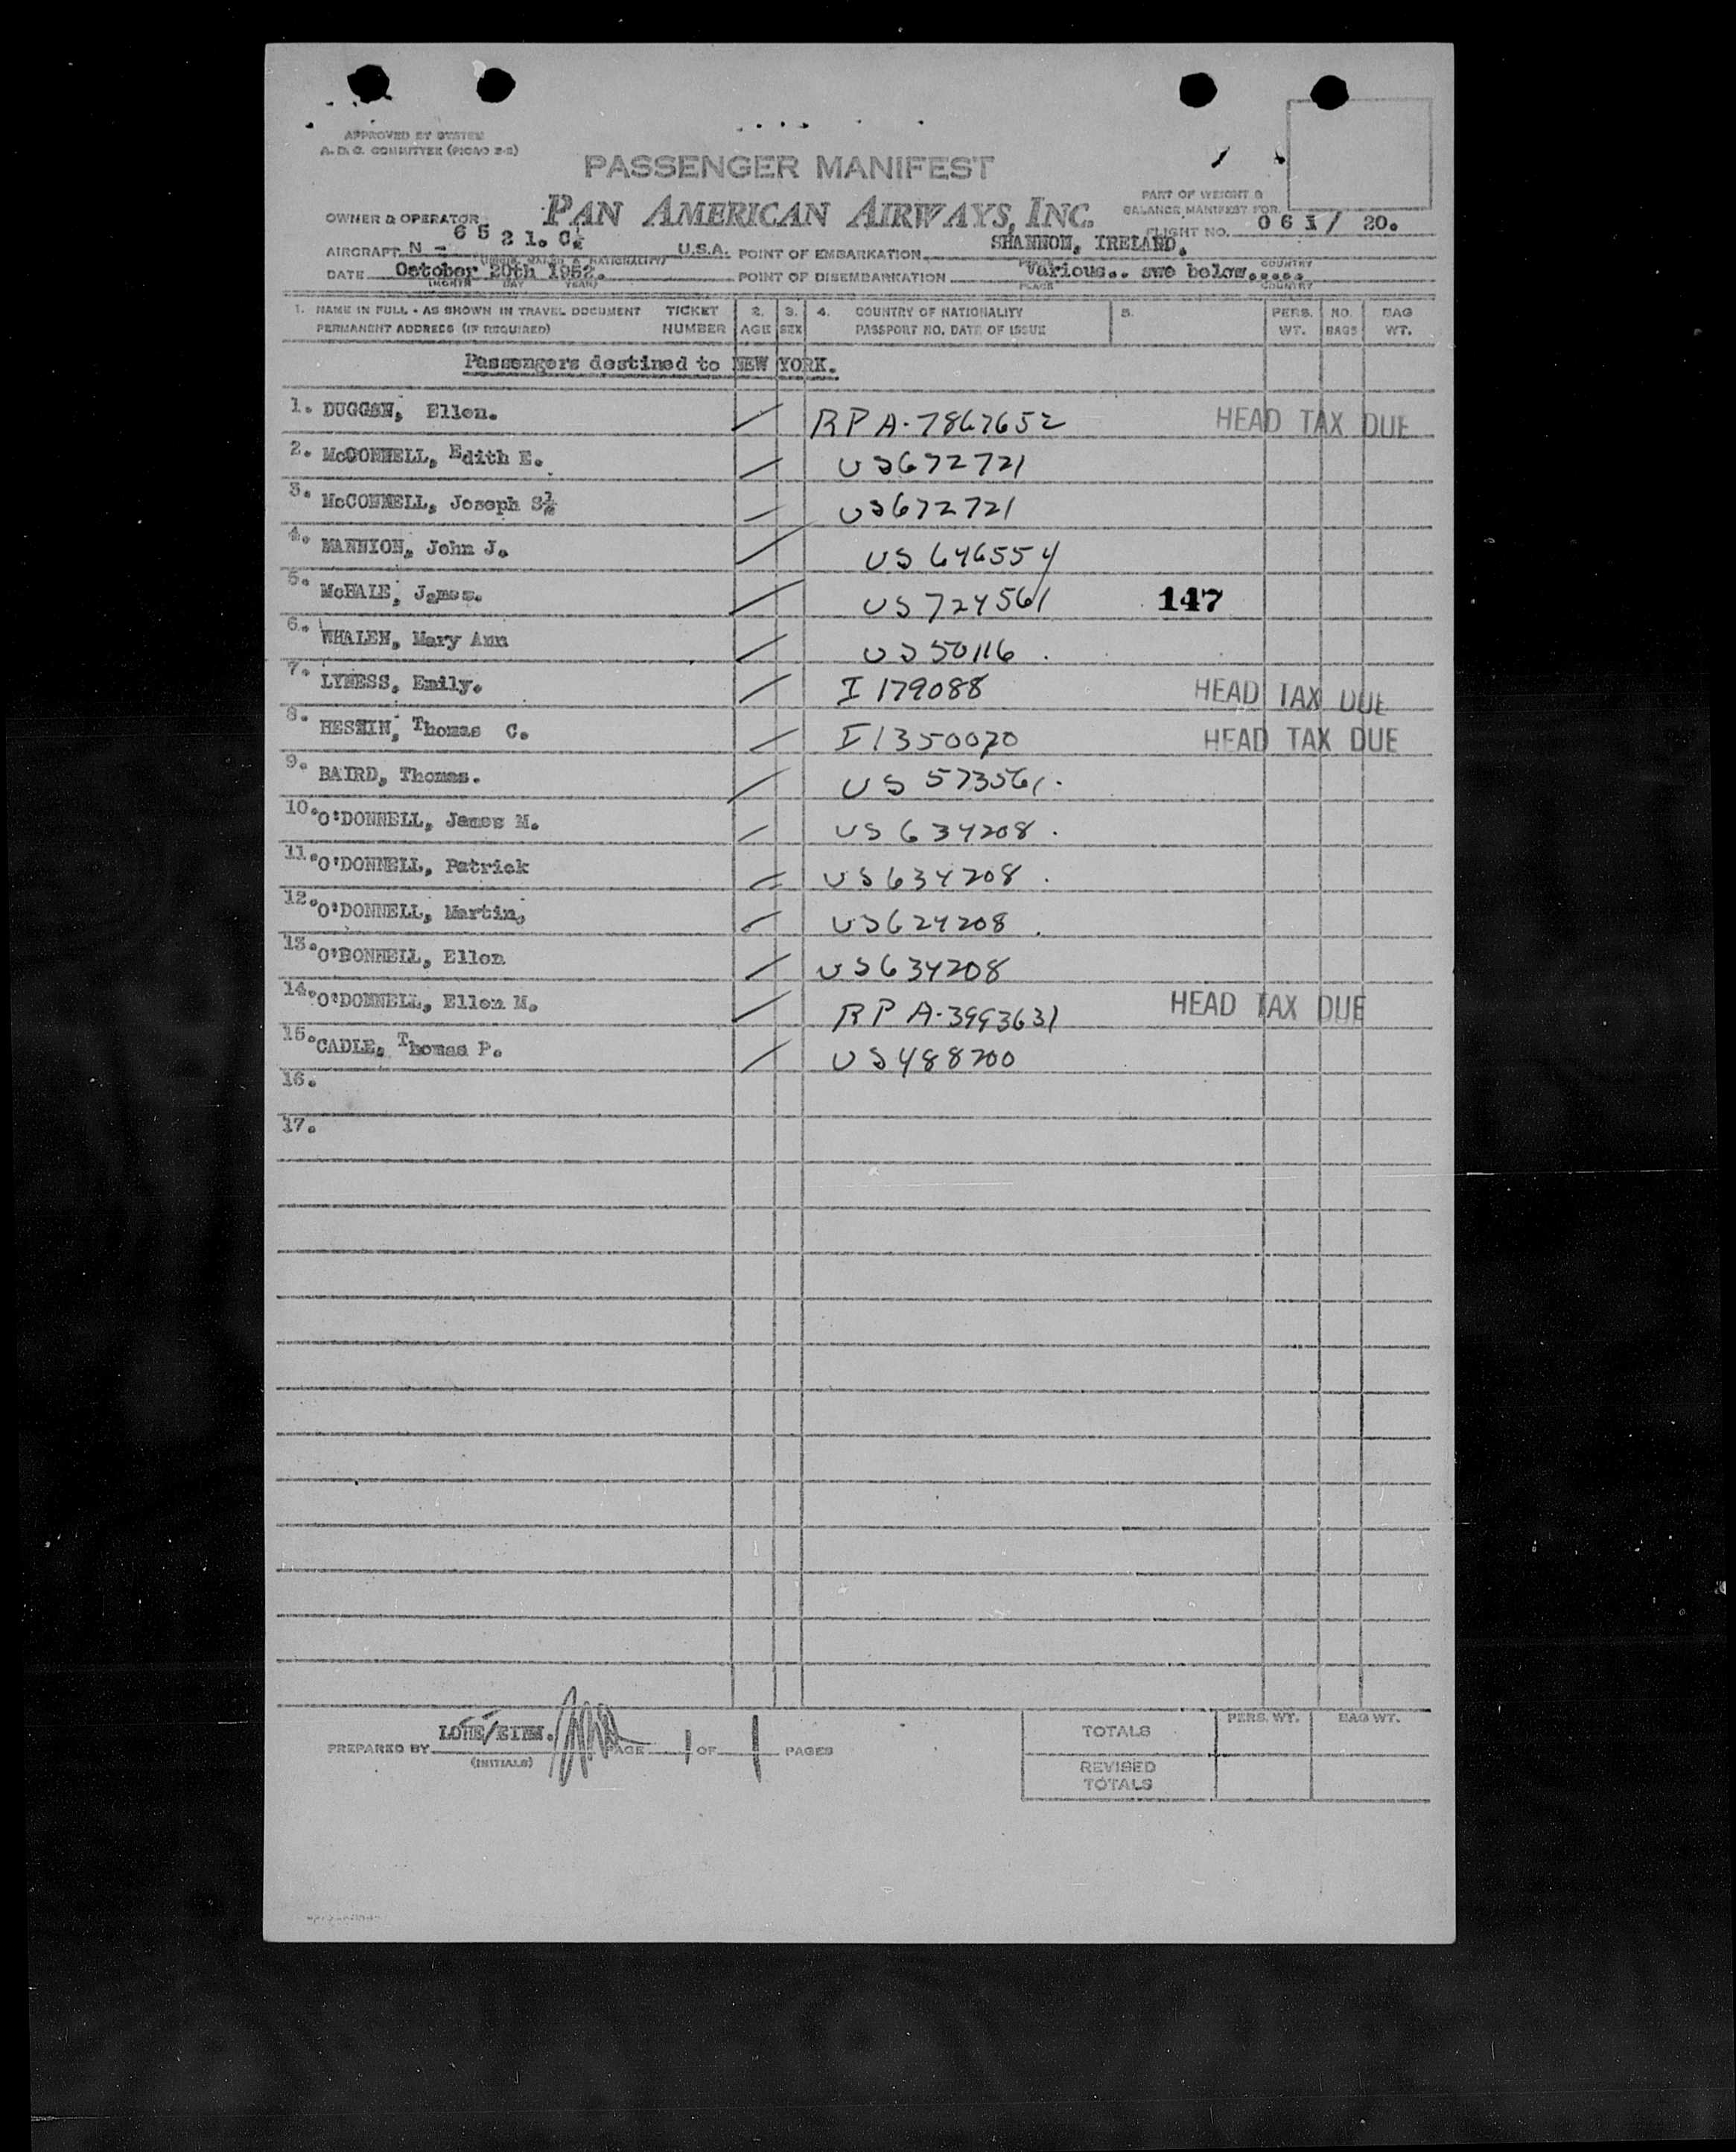 APPROVED BY SYSTEM
A. D. C. COMMITTEE (PICAO 2-2)
PASSENGER MANIFEST
PART OF WEIGHT &
BALANCE MANIFEST FOR
OWNER & OPERATOR PAN AMERICAN AIRWAYS, INC.
FLIGHT NO. 061/ 20.
AIRCRAFT N - 6 5 2 1. C. U.S.A. POINT OF EMBARKATION SHANNON, IRELAND.
PLACE COUNTRY
DATE October 20th 1952. POINT OF DISEMBARKATION Various.. swe below.....
(MONTH DAY YEAR) PLACE COUNTRY
1. NAME IN FULL - AS SHOWN IN TRAVEL DOCUMENT TICKET 2. 3. 4. COUNTRY OF NATIONALITY 5. PERS. NO. BAG
PERMANENT ADDRESS (IF REQUIRED) NUMBER AGE SEX PASSPORT NO. DATE OF ISSUE WT. BAGS WT.
Passengers destined to NEW YORK.
1. DUGGAN, Ellen. RPA-7867652 HEAD TAX DUE
2. McCONNELL, Edith E. US672721
3. McCONNELL, Joseph S½ US672721
4. MANNION, John J. US 646554
5. McHALE, James. US 724561 147
6. WHALEN, Mary Ann US 50116 .
7. LYNESS, Emily. I 179088 HEAD TAX DUE
8. Thomas C. I1350070 HEAD TAX DUE
9. BAIRD, Thomas. US 573561.
10. O'DONNELL, James M. US 634208 .
11. O'DONNELL, Patrick US634208 .
12. O'DONNELL, Martin, US624208 .
13. O'DONNELL, Ellen US634208
14. O'DONNELL, Ellen M. RPA-3993631 HEAD TAX DUE
15. CADLE, Thomas P. US488700
16.
17.
PREPARED BY PAGE 1 OF 1 PAGES
(INITIALS)
TOTALS PERS. WT. BAG WT.
REVISED
TOTALS